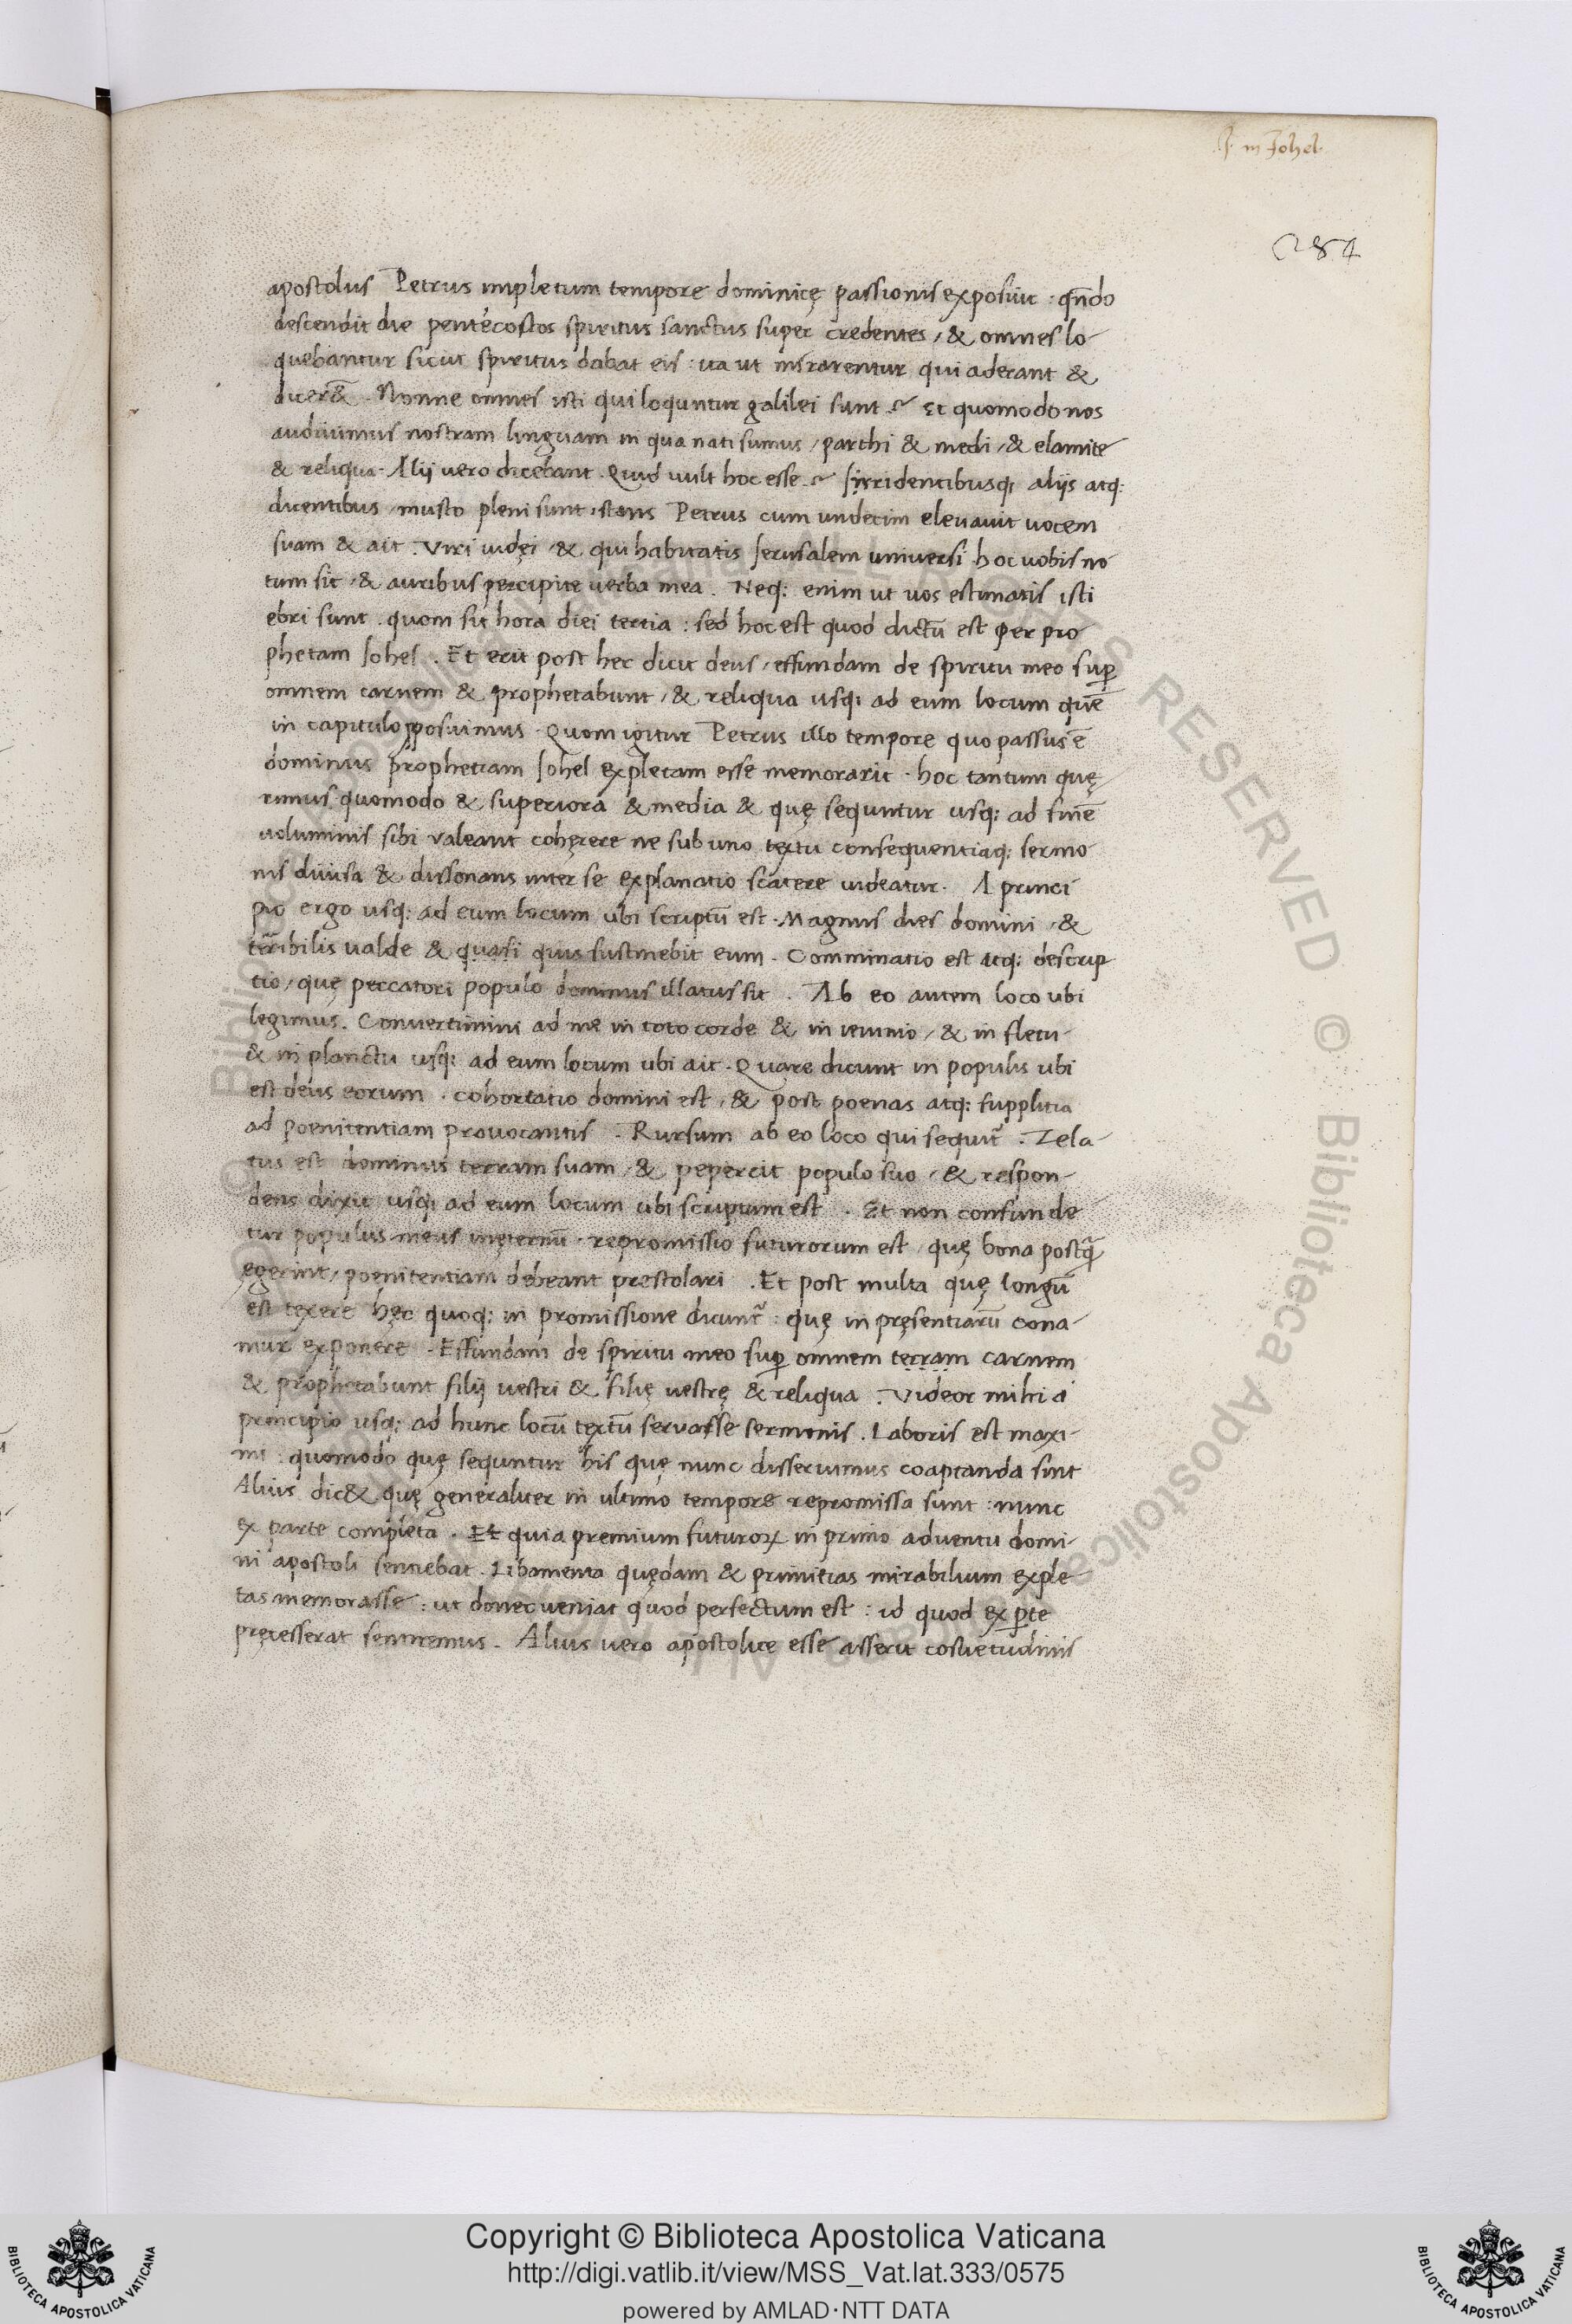 I. in Johel.
284
apostolus Petrus impletum tempore dominicę passionis exposuit : qn̄do
descendit die pentecostos spiritus sanctus super credentes / & omnes lo-
quebantur sicut spiritus dabat eis : ita ut mirarentur qui aderant &
dicer&̄ . Nonne omnes isti qui loquntur galilei sunt ? Et quomodo nos
audiuimus nostram linguam in qua nati sumus / parthi & medi / & elamite
& reliqua . Alij vero dicebant . Quid uult hoc esse ? Irridentibusq; alijs atq:
dicentibus / musto pleni sunt : stans Petrus cum undecim eleuauit uocem
suam & ait . Viri iudęi / & qui habitatis Jerusalem universi hoc uobis no
tum sit / & auribus percipite verba mea . Neq: enim ut uos estimatis isti
ebri sunt . quom sit hora diei tertia : sed hoc est quod dictū est per pro
phetam Johel . Et erit post hec dicit deus / effundam de spiritu meo sup̄
omnem carnem & prophetabunt / & reliqua usq; ad eum locum quē
in capitulo p̄posuimus . Quom igitur Petrus illo tempore quo passus ē
dominus prophetiam Johel expletam esse memorarit . hoc tantum quę-
rimus quomodo & superiora & media & quę sequntur usq: ad finē
uoluminis sibi valeant cohęrere ne sub uno textu consequentiaq; sermo
nis diuisa & dissonans inter se explanatio scatere uideatur . A princi
pio ergo usq: ad eum locum ubi scriptū est . Magnus dies domini / &
terribilis ualde & quasi quis sustinebit eum . Comminatio est atq: descrip
tio / quę peccatori populo dominus illatus sit . Ab eo autem loco ubi
legimus . Convertimini ad me in toto corde & in ieiunio / & in fletu
& in planctu usq: ad eum locum ubi ait . Quare dicunt in populis ubi
est deus eorum . cohortatio domini est / & post poenas atq: supplicia
ad poenitentiam provocantis . Rursum ab eo loco qui sequit᷑ . Zela-
tus est dominus terram suam / & pepercit populo suo / & respon-
dens dixit usq; ad eum locum ubi scriptum est . Et non confunde
tur populus meus inęternū . repromissio futurorum est / quę bona postq̄
egerint / poenitentiam debeant prestolari . Et post multa quę longū
est texere hęc quoq: in promissione dicunt᷑ : quę in pręsentiarū cona-
mur exponere . Effundam de spiritu meo sup̄ omnem terram carnem
& prophetabunt filij vestri & filię vestrę & reliqua . Videor mihi a
principio usq: ad hunc locū textū servasse sermonis . Laboris est maxi-
mi : quomodo quę sequntur his quę nunc disseruimus coaptanda sint
Alius dic& quę generaliter in ultimo tempore repromissa sunt : nunc
ex parte completa . Et quia premium futuroꝝ in primo adventu domi-
ni apostoli sentiebat . Libamenta quędam & primitias mirabilium exple-
tas memorasse : ut donec veniat quod perfectum est : id quod ex p̱te
pręcesserat sentiremus . Alius vero apostolice esse asserit cosuetudinis
Copyright © Biblioteca Apostolica Vaticana
http://digi.vatlib.it/view/MSS_Vat.lat.333/0575
powered by AMLAD·NTT DATA